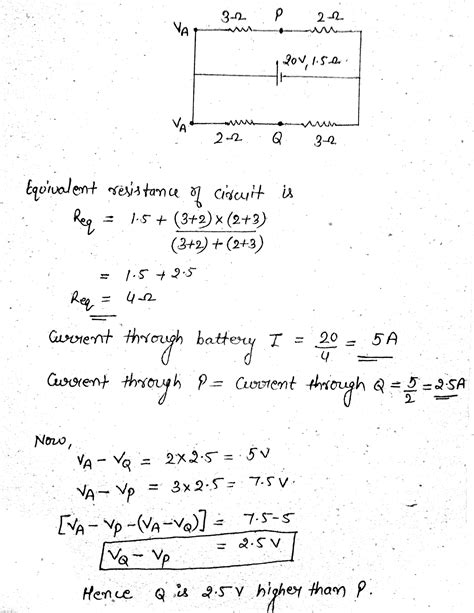 3Ω P 2Ω
VA
20V, 1.5Ω
VA
2Ω Q 3Ω
Equivalent resistance of circuit is
Req = 1.5 + (3+2)×(2+3)
(3+2)+(2+3)
= 1.5 + 2.5
Req = 4Ω
Current through battery I = 20/4 = 5A
Current through P = Current through Q = 5/2 = 2.5A
Now,
VA - VQ = 2×2.5 = 5V
VA - VP = 3×2.5 = 7.5V.
[VA - VP - (VA - VQ)] = 7.5-5
VQ - VP = 2.5V
Hence Q is 2.5V higher than P.